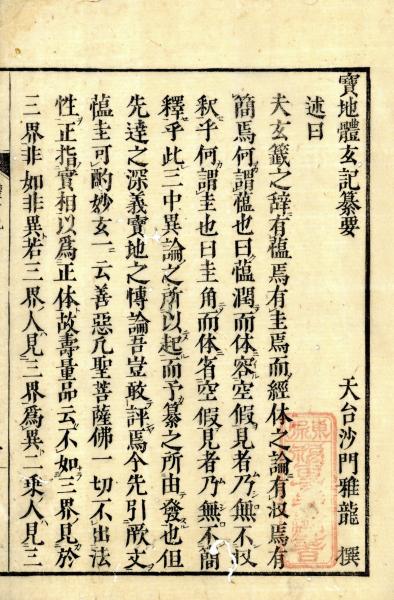 寶地體玄記纂要　天台沙門雅龍　撰
述曰
夫玄籤之辞有薀焉有圭焉而經体之論有収焉有
簡焉何謂薀也曰薀潤而体容空假見者乃無不収
釈乎何謂圭也曰圭角而体者空假見者乃無不簡
釋乎此三中異論之所以起而予纂之所由發也但
先達之深義寶地之慱論吾豈敢評焉今先引厥文
薀圭可酌妙玄一云善惡凢聖菩薩佛一切不出法
性正指實相以爲正体故壽量品云不如三界見於
三界非如非異若三界人見三界爲異二乗人見三